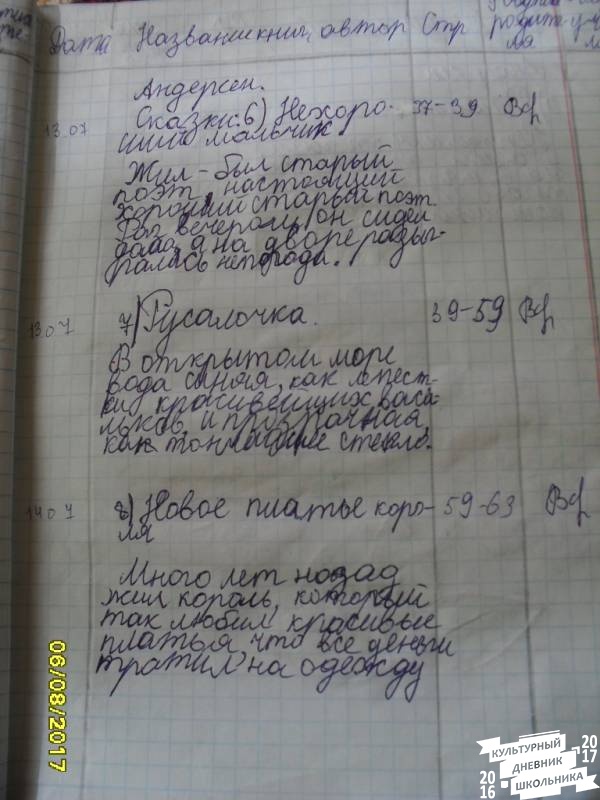 Дата Название книги, автор Стр
Андерсен.
13.07 Сказки. 6) Нехоро- 37-39
ший мальчик
Жил-был старый
поэт, настоящий
хороший старый поэт.
Раз вечером он сидел
дома, а на дворе разы-
гралась непогода.
13.07 7) Русалочка. 39-59
В открытом море
вода синяя, как лепест-
ки красивейших васи-
льков, и прозрачная,
как тончайшее стекло.
14.07 8) Новое платье коро- 59-63
ля
Много лет назад
жил король, который
так любил красивые
платья, что все деньги
тратил на одежду
06/08/2017
КУЛЬТУРНЫЙ
ДНЕВНИК
ШКОЛЬНИКА
2016
2017